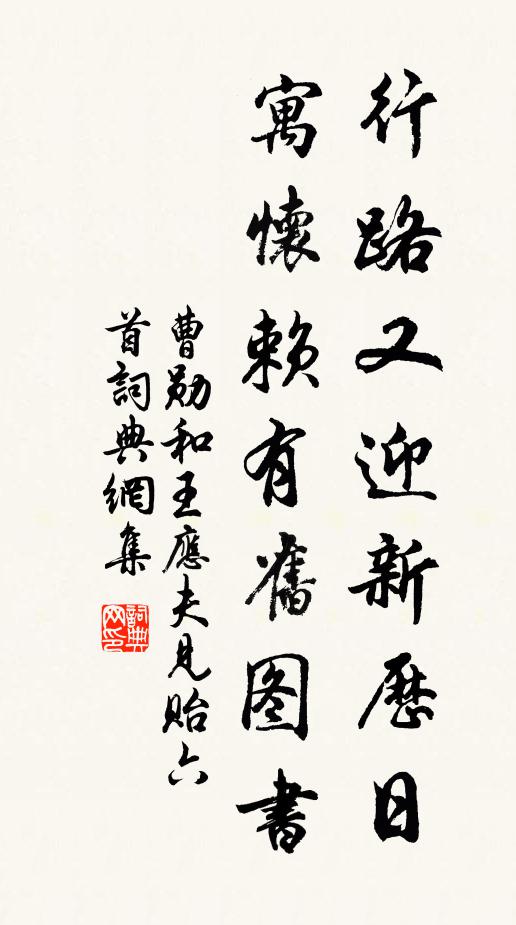 行路又迎新歷日
寓懷賴有舊图書
曹勛和王應夫見貽六
首詞典網集
詞典
网印